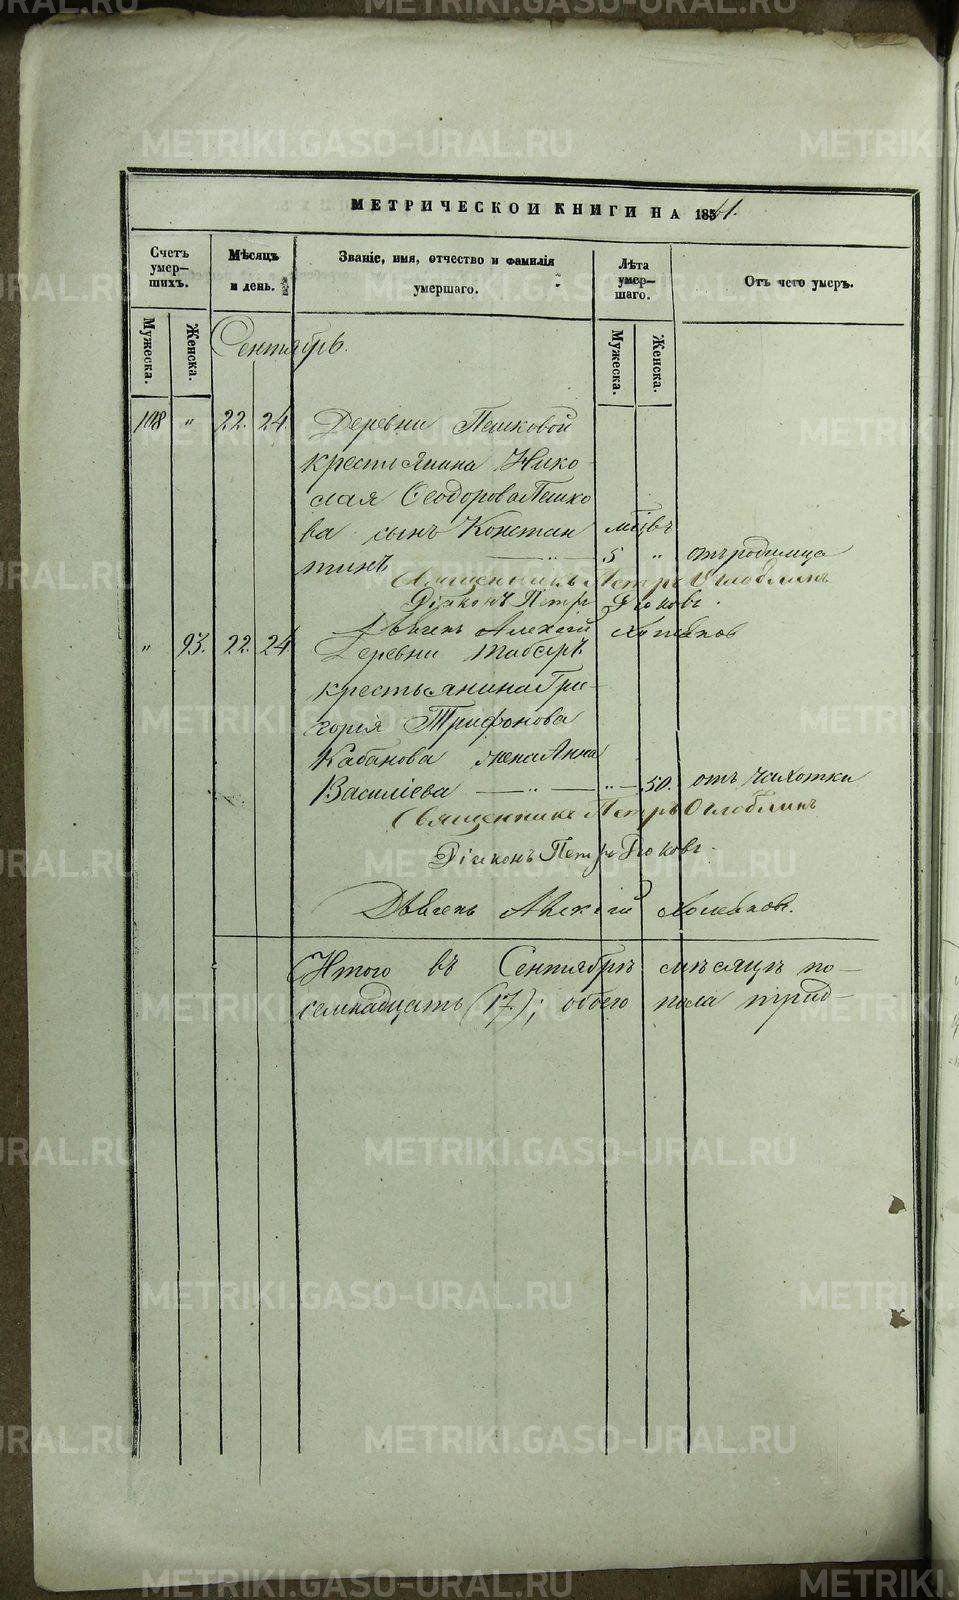 МЕТРИЧЕСКОЙ КНИГИ НА 1861.
Счетъ умер-шихъ.
Мѣсяцъ и день.
Званіе, имя, отчество и фамилія умершаго.
Лѣта умер-шаго.
Отъ чего умеръ.
Мужеска.
Женска.
Мужеска.
Женска.
Сентябрь.
108 " 22. 24. Деревни Пешковой
крестьянина Нико-
лая Ѳеодорова Пешко
ва сынъ Констан мѣсяцевъ
тинъ — " — 5 " отъ родимца
Священникъ Петръ Оглоблинъ
Діаконъ Петръ
Дьячекъ Алексій
" 93. 22. 24 Деревни
крестьянина Гри-
горія Трифонова
Кабанова жена Анна
Василіева — " — " — 50. отъ чахотки
Священникъ Петръ Оглоблинъ
Діаконъ Петръ
Дьячекъ Алексій
Итого въ Сентябрѣ мѣсяцѣ по-
семнадцать (17.); обоего пола трид-
METRIKI.GASO-URAL.RU